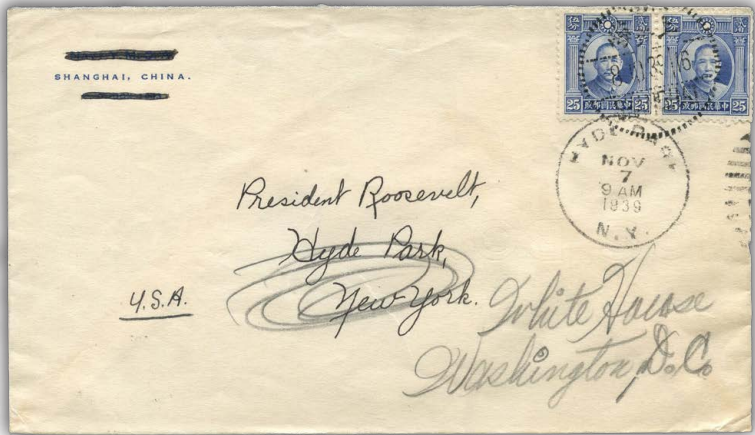 SHANGHAI, CHINA.
25 中華民國郵政 25
25 中華民國郵政 25
HYDE PARK
NOV
7
9 AM
1939
N.Y.
President Roosevelt,
Hyde Park,
New York.
U.S.A.
White House
Washington, D.C.